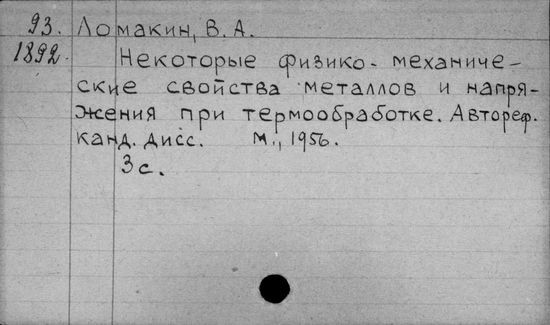 93. Ломакин, В. А.
1892. Некоторые физико-механиче-
ские свойства металлов и напря-
жения при термообработке. Автореф.
канд. дисс. М., 1956.
3 с.